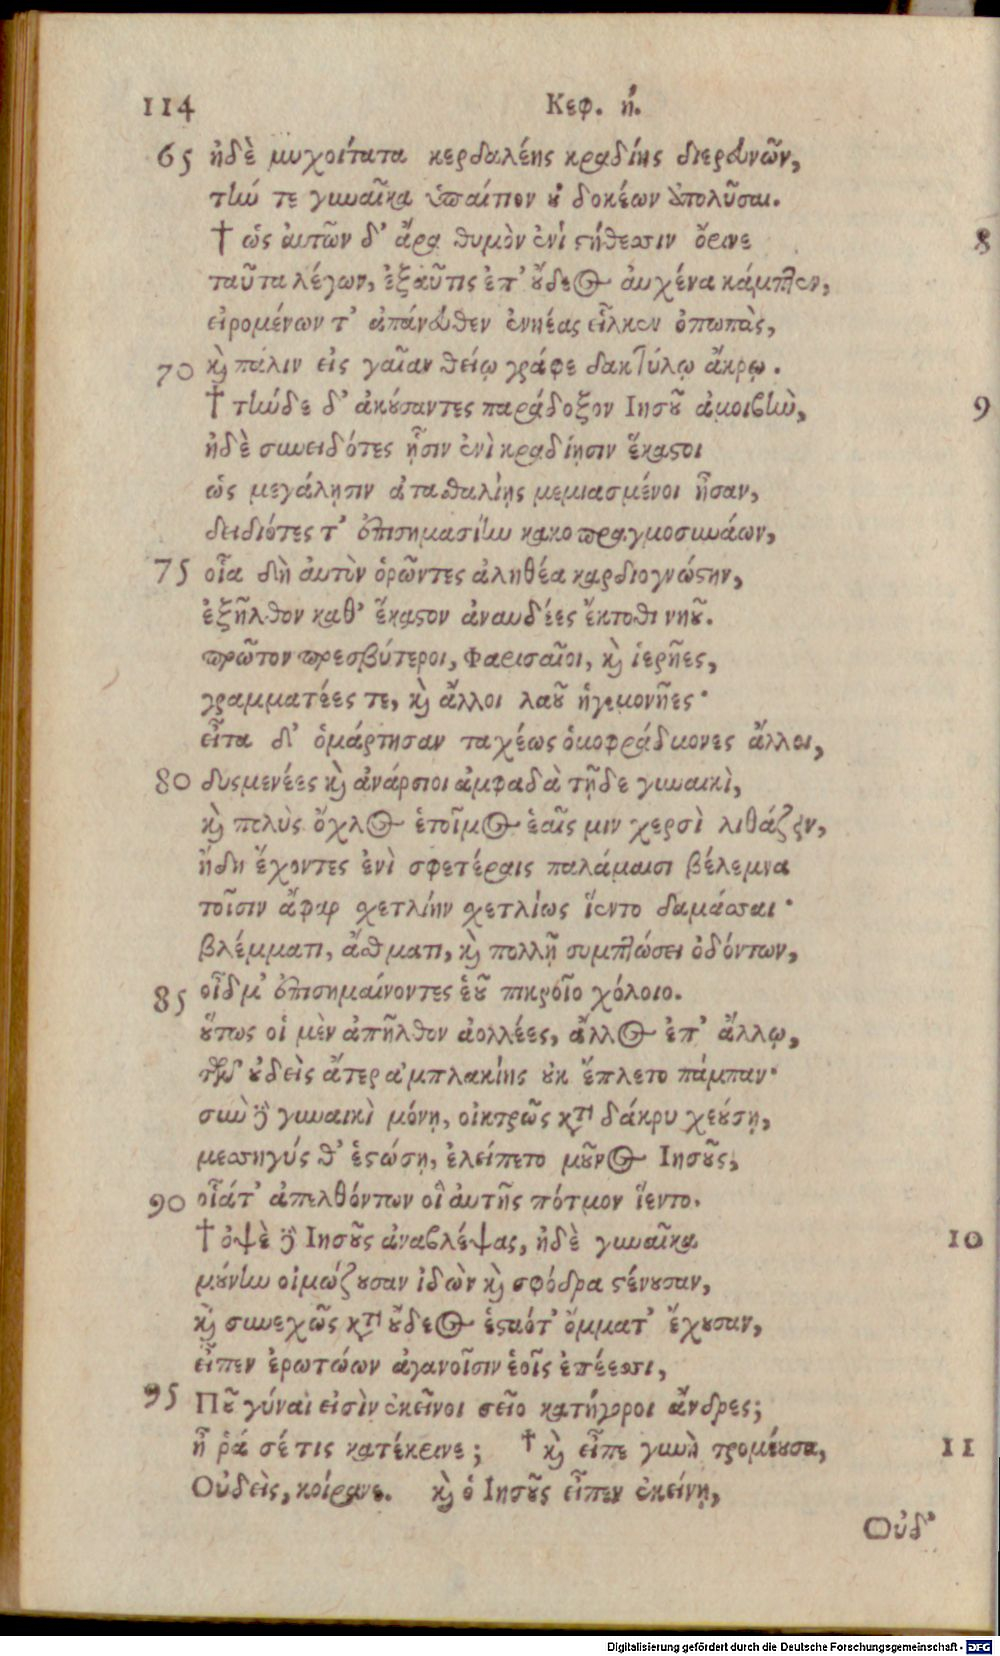 114 Κεφ. ή.
65 ἠδὲ μυχοίτατα κερδαλέης κραδίης διερευνῶν,
τήν τε γυναῖκα ὑπαίτιον οὐ δοκέων ἀπολῦσαι.
† ὡς αὐτῶν δ' ἄρα θυμὸν ἐνὶ στήθεσσιν ὄρινε 8
ταῦτα λέγων, ἐξαῦτις ἐπ' οὔδεος αὐχένα κάμπτεν,
εἰρομένων τ' ἀπάνευθεν ἐνηέας εἷλκεν ὀπωπὰς,
70 καὶ πάλιν εἰς γαῖαν θείῳ γράφε δακτύλῳ ἄκρῳ.
† τήνδε δ' ἀκούσαντες παράδοξον Ιησοῦ ἀμοιβὴν, 9
ἠδὲ συνειδότες ᾗσιν ἐνὶ κραδίῃσιν ἕκαστοι
ὡς μεγάλῃσιν ἀτασθαλίῃς μεμιασμένοι ἦσαν,
δειδιότες τ' ἐπισημασίην κακοπραγμοσυνάων,
75 οἷα δὴ αὐτὸν ὁρῶντες ἀληθέα καρδιογνώστην,
ἐξῆλθον καθ' ἕκαστον ἀναυδέες ἔκτοθι νηοῦ.
πρῶτον πρεσβύτεροι, Φαρισαῖοι, καὶ ἱερῆες,
γραμματέες τε, καὶ ἄλλοι λαοῦ ἡγεμονῆες·
εἶτα δ' ὁμάρτησαν ταχέως ὁμοφράδμονες ἄλλοι,
80 δυσμενέες καὶ ἀνάρσιοι ἀμφαδὰ τῇδε γυναικὶ,
καὶ πολὺς ὄχλος ἑτοῖμος ἑαῖς μιν χερσὶ λιθάζειν,
ἤδη ἔχοντες ἐνὶ σφετέραις παλάμαισι βέλεμνα
τοῖσιν ἄφαρ σχετλίην σχετλίως ἵεντο δαμάσσαι·
βλέμματι, ἄσθματι, καὶ πολλῇ συμπτώσει ὀδόντων,
85 οἶδμ' ἐπισημαίνοντες ἑοῦ πικροῖο χόλοιο.
οὕτως οἱ μὲν ἀπῆλθον ἀολλέες, ἄλλος ἐπ' ἄλλῳ,
τῶν δ' οὐδεὶς ἄτερ ἀμπλακίης οὐκ ἔπλετο πάμπαν·
σὺν δὲ γυναικὶ μόνῃ, οἰκτρῶς κατὰ δάκρυ χεούσῃ,
μεσσηγύς θ' ἑστώσῃ, ἐλείπετο μοῦνος Ιησοῦς,
90 οἷάτ' ἀπελθόντων οἳ αὐτῆς πότμον ἵεντο.
† ὀψὲ δὲ Ιησοῦς ἀναβλέψας, ἠδὲ γυναῖκα 10
μούνην οἰμώζουσαν ἰδὼν καὶ σφόδρα στένουσαν,
καὶ συνεχῶς κατὰ οὔδεος ἑσταότ' ὄμματ' ἔχουσαν,
εἶπεν ἐρωτώων ἀγανοῖσιν ἑοῖς ἐπέεσσι,
95 Ποῦ γύναι εἰσὶν ἐκεῖνοι σεῖο κατήγοροι ἄνδρες;
ἦ ῥά σέ τις κατέκρινε; † καὶ εἶπε γυνὴ τρομέουσα, 11
Οὐδεὶς, κοίρανε. καὶ ὁ Ιησοῦς εἶπεν ἐκείνῃ,
Οὐδ'
Digitalisierung gefördert durch die Deutsche Forschungsgemeinschaft - DFG